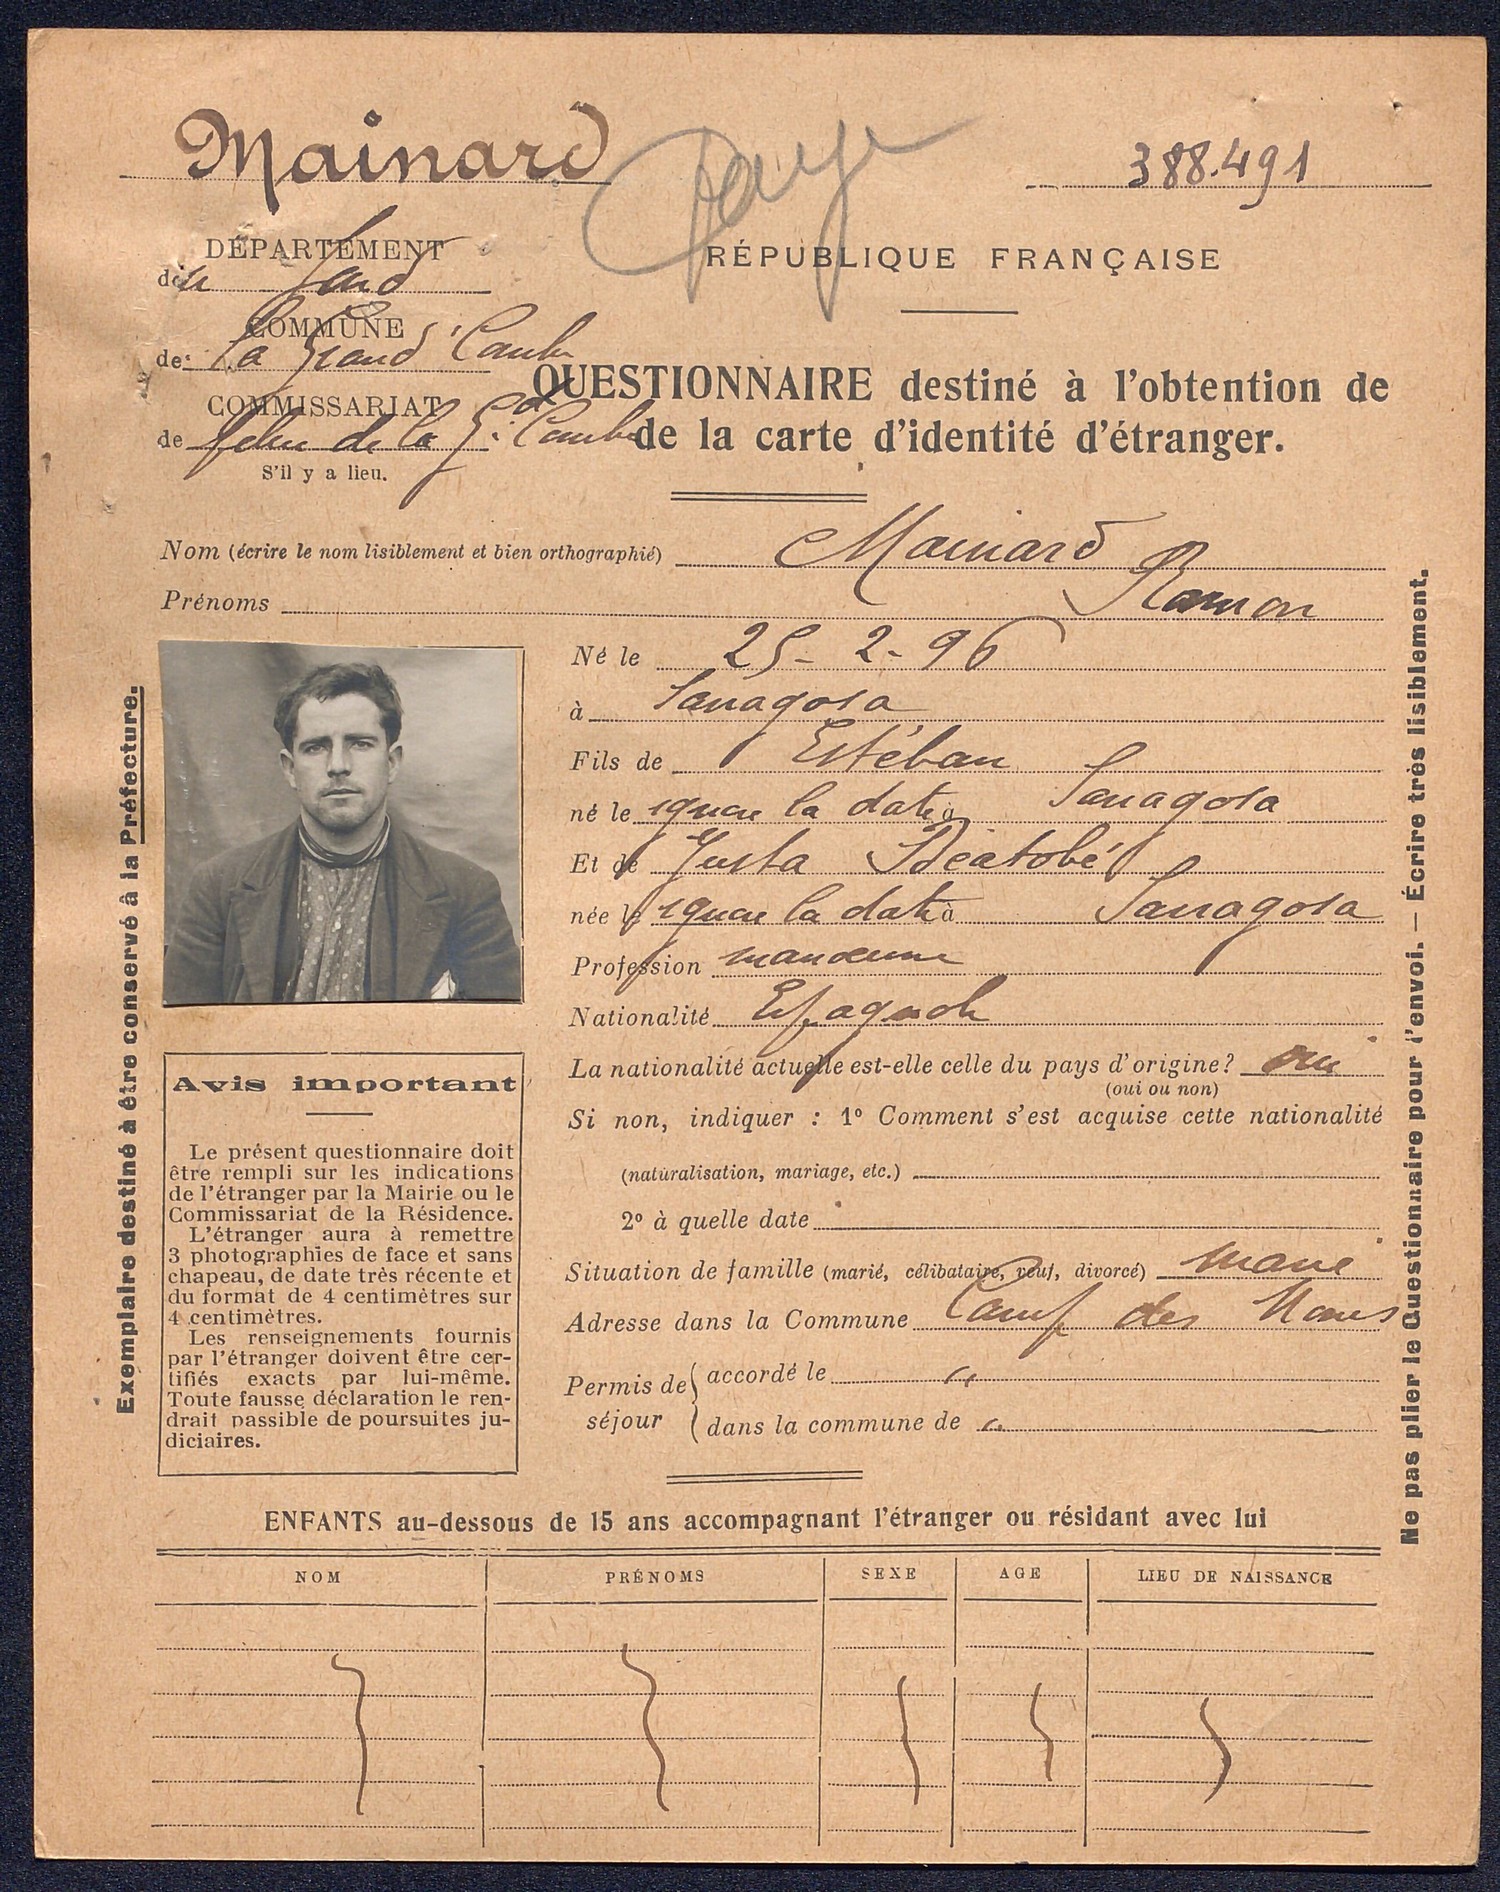 Mainard
388.491
DÉPARTEMENT
du Gard
RÉPUBLIQUE FRANÇAISE
COMMUNE
de: La Grand'Combe
QUESTIONNAIRE destiné à l'obtention de
COMMISSARIAT
de de la Gd Combe
de la carte d'identité d'étranger.
S'il y a lieu.
Nom (écrire le nom lisiblement et bien orthographié) Mainard
Prénoms Ramon
Né le 25-2-96
à Saragosa
Fils de Estéban
né le ignore la date à Saragosa
Et de Justa
née le ignore la date à Saragosa
Profession manœuvre
Nationalité Espagnole
La nationalité actuelle est-elle celle du pays d'origine? oui
(oui ou non)
Si non, indiquer : 1º Comment s'est acquise cette nationalité
(naturalisation, mariage, etc.)
2º à quelle date
Situation de famille (marié, célibataire, veuf, divorcé) marié
Adresse dans la Commune Camp des
Permis de séjour
accordé le "
dans la commune de "
Avis important
Le présent questionnaire doit
être rempli sur les indications
de l'étranger par la Mairie ou le
Commissariat de la Résidence.
L'étranger aura à remettre
3 photographies de face et sans
chapeau, de date très récente et
du format de 4 centimètres sur
4 centimètres.
Les renseignements fournis
par l'étranger doivent être cer-
tifiés exacts par lui-même.
Toute fausse déclaration le ren-
drait passible de poursuites ju-
diciaires.
Exemplaire destiné à être conservé à la Préfecture.
Ne pas plier le Questionnaire pour l'envoi. — Écrire très lisiblement.
ENFANTS au-dessous de 15 ans accompagnant l'étranger ou résidant avec lui
NOM PRÉNOMS SEXE AGE LIEU DE NAISSANCE